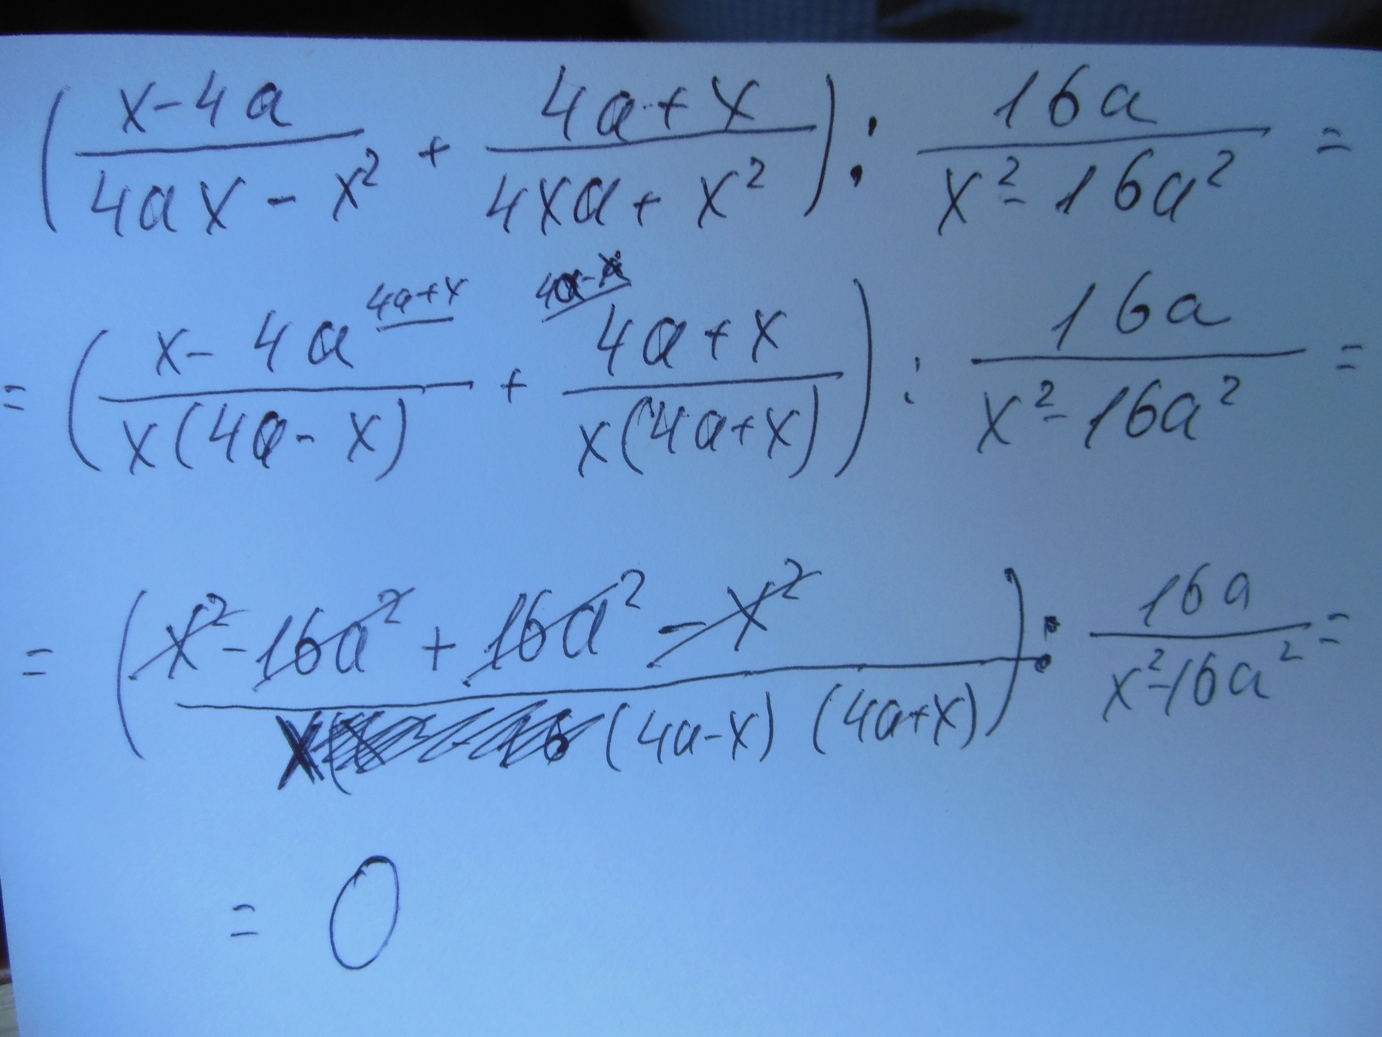 ( (x-4a)/(4ax - x²) + (4a+x)/(4xa + x²) ) : 16a/(x² - 16a²) =
= ( (x - 4a)/(x(4a - x)) 4a+x + 4a-x (4a + x)/(x(4a+x)) ) : 16a/(x² - 16a²) =
= ( (x² - 16a² + 16a² - x²)/((4a-x) (4a+x)) ) : 16a/(x² - 16a²) =
= 0